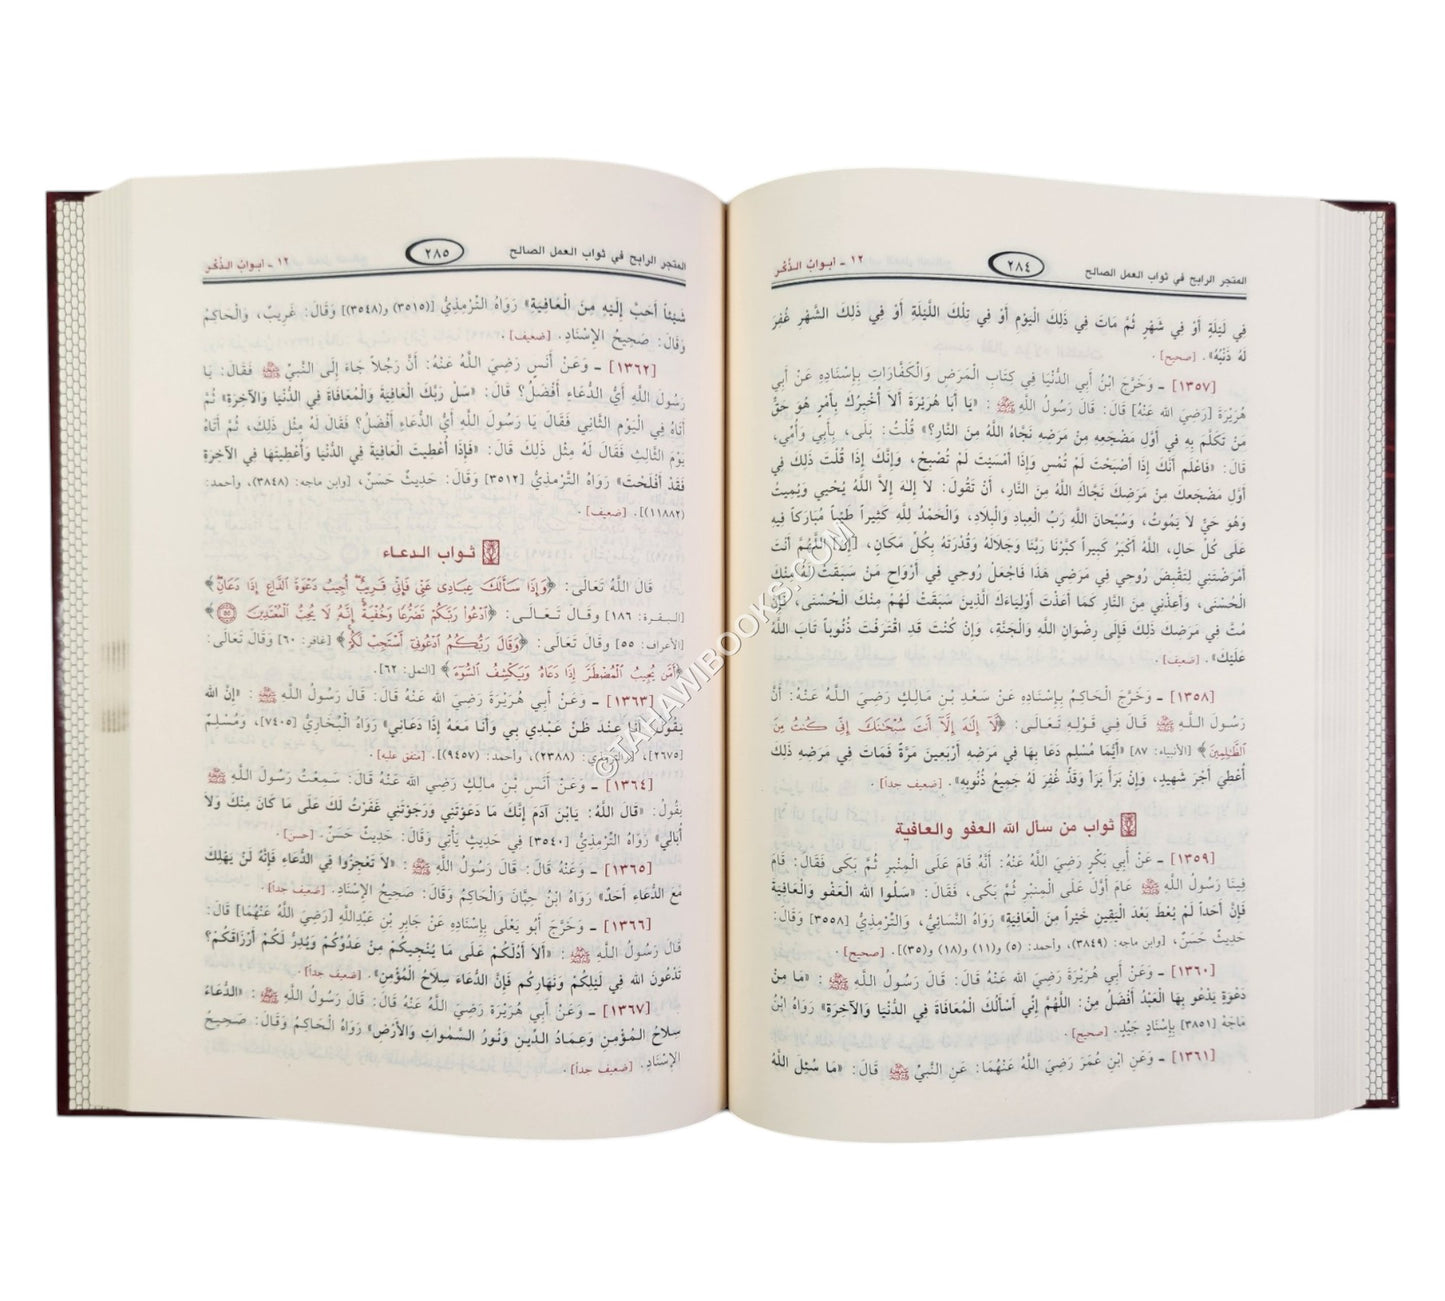 المتجر الرابح في ثواب العمل الصالح ٢٨٤ ١٢ - أبوابُ الذّكْر
فِي لَيْلَةٍ أَوْ فِي شَهْرٍ ثُمَّ مَاتَ فِي ذَلِكَ الْيَوْمِ أَوْ فِي تِلْكَ اللَّيْلَةِ أَوْ فِي ذَلِكَ الشَّهْرِ غُفِرَ
لَهُ ذَنْبُهُ». [صحيح].
[١٣٥٧] ـ وَخَرَّجَ ابْنُ أَبِي الدُّنْيَا فِي كِتَابِ الْمَرَضِ وَالْكَفَّارَاتِ بِإِسْنَادِهِ عَنْ أَبِي
هُرَيْرَةَ [رَضِيَ الله عَنْهُ] قَالَ: قَالَ رَسُولُ اللَّهِ ﷺ: «يَا أَبَا هُرَيْرَةَ أَلاَ أُخْبِرُكَ بِأَمْرٍ هُوَ حَقٌّ
مَنْ تَكَلَّمَ بِهِ فِي أَوَّلِ مَضْجَعِهِ مِنْ مَرَضِهِ نَجَّاهُ اللَّهُ مِنَ النَّارِ؟» قُلْتُ: بَلَى، بِأَبِي وَأُمِّي،
قَالَ: «فَاعْلَم أَنَّكَ إِذَا أَصْبَحْتَ لَمْ تُمْسِ وَإِذَا أَمْسَيْتَ لَمْ تُصْبِحْ، وَإِنَّكَ إِذَا قُلْتَ ذَلِكَ فِي
أَوَّلِ مَضْجَعِكَ مِنْ مَرَضِكَ نَجَّاكَ اللَّهُ مِنَ النَّارِ، أَنْ تَقُولَ: لاَ إِلهَ إِلاَّ اللَّهُ يُحْيِي وَيُمِيتُ
وَهُوَ حَيٌّ لاَ يَمُوتُ، وَسُبْحَانَ اللَّهِ رَبِّ الْعِبادِ وَالْبِلاَدِ، وَالْحَمْدُ لِلَّهِ كَثِيراً طَيِّباً مُبَارَكاً فِيهِ
عَلَى كُلِّ حَالٍ، اللَّهُ أَكْبَرُ كَبِيراً كَبَّرْنَا رَبَّنَا وَجَلاَلَهُ وَقُدْرَتَهُ بِكُلِّ مَكَانٍ، [إِنْ] اللَّهُمَّ أَنْتَ
أَمْرَضْتَنِي لِتَقْبِضَ رُوحِي فِي مَرَضِي هَذَا فَاجْعَلْ رُوحِي فِي أَرْوَاحِ مَنْ سَبَقَتْ لَهُ مِنْكَ
الْحُسْنَى، وَأَعِذْنِي مِنَ النَّارِ كَمَا أَعَذْتَ أَوْلِيَاءَكَ الَّذِينَ سَبَقَتْ لَهُمْ مِنْكَ الْحُسْنَى، فَإِنْ
مُتَّ فِي مَرَضِكَ ذَلِكَ فَإِلَى رِضْوَانِ اللَّهِ وَالْجَنَّةِ، وَإِنْ كُنْتَ قَدِ اقْتَرَفْتَ ذُنُوباً تَابَ اللَّهُ
عَلَيْكَ». [ضعيف].
[١٣٥٨] ـ وَخَرَّجَ الْحَاكِمُ بِإِسْنَادِهِ عَنْ سَعْدِ بْنِ مَالِكٍ رَضِيَ اللَّهُ عَنْهُ: أَنَّ
رَسُولَ اللَّهِ ﷺ قَالَ فِي قَوْلِهِ تَعَالَى: ﴿لَّا إِلَٰهَ إِلَّا أَنتَ سُبْحَٰنَكَ إِنِّي كُنتُ مِنَ
الظَّٰلِمِينَ﴾ [الأنبياء: ٨٧] «أَيُّمَا مُسْلِمٍ دَعَا بِهَا فِي مَرَضِهِ أَرْبَعِينَ مَرَّةً فَمَاتَ فِي مَرَضِهِ ذَلِكَ
أُعْطِيَ أَجْرَ شَهِيدٍ، وَإِنْ بَرَأَ بَرَأَ وَقَدْ غُفِرَ لَهُ جَمِيعُ ذُنُوبِهِ». [ضعيف جداً].
ثواب من سأل الله العفو والعافية
[١٣٥٩] ـ عَنْ أَبِي بَكْرٍ رَضِيَ اللَّهُ عَنْهُ: أَنَّهُ قَامَ عَلَى الْمِنْبَرِ ثُمَّ بَكَى فَقَالَ: قَامَ
فِينَا رَسُولُ اللَّهِ ﷺ عَامَ أَوَّلَ عَلَى الْمِنْبَرِ ثُمَّ بَكَى، فَقَالَ: «سَلُوا اللَّهَ الْعَفْوَ وَالْعَافِيَةَ
فَإِنَّ أَحَداً لَمْ يُعْطَ بَعْدَ الْيَقِينِ خَيْراً مِنَ الْعَافِيَةِ» رَوَاهُ النَّسَائِيُّ، وَالتِّرْمِذِيُّ [٣٥٥٨] وَقَالَ:
حَدِيثٌ حَسَنٌ، [وابن ماجه: (٣٨٤٩)، وأحمد: (٥) و(١١) و(١٨) و(٣٥)]. [صحيح].
[١٣٦٠] ـ وَعَنْ أَبِي هُرَيْرَةَ رَضِيَ الله عَنْهُ قَالَ: قَالَ رَسُولُ اللَّهِ ﷺ: «مَا مِنْ
دَعْوَةٍ يَدْعُو بِهَا الْعَبْدُ أَفْضَلَ مِنْ: اللَّهُمَّ إِنِّي أَسْأَلُكَ الْمُعَافَاةَ فِي الدُّنْيَا وَالآخِرَةِ» رَوَاهُ ابْنُ
مَاجَهْ [٣٨٥١] بِإِسْنَادٍ جَيِّدٍ. [صحيح].
[١٣٦١] ـ وَعَنِ ابْنِ عُمَرَ رَضِيَ اللَّهُ عَنْهُمَا: عَنِ النَّبِيِّ ﷺ قَالَ: «مَا سُئِلَ اللَّهُ
المتجر الرابح في ثواب العمل الصالح ٢٨٥ ١٢ - أبوابُ الذّكْر
شَيْئاً أَحَبَّ إِلَيْهِ مِنَ الْعَافِيَةِ» رَوَاهُ التِّرْمِذِيُّ [(٣٥١٥) و(٣٥٤٨)] وَقَالَ: غَرِيبٌ، وَالْحَاكِمُ
وَقَالَ: صَحِيحُ الإِسْنَادِ. [ضعيف].
[١٣٦٢] ـ وَعَنْ أَنَسٍ رَضِيَ اللَّهُ عَنْهُ: أَنَّ رَجُلاً جَاءَ إِلَى النَّبِيِّ ﷺ فَقَالَ: يَا
رَسُولَ اللَّهِ أَيُّ الدُّعَاءِ أَفْضَلُ؟ قَالَ: «سَلْ رَبَّكَ الْعَافِيَةَ وَالْمُعَافَاةَ فِي الدُّنْيَا وَالآخِرَةِ» ثُمَّ
أَتَاهُ فِي الْيَوْمِ الثَّانِي فَقَالَ يَا رَسُولَ اللَّهِ أَيُّ الدُّعَاءِ أَفْضَلُ؟ فَقَالَ لَهُ مِثْلَ ذَلِكَ، ثُمَّ أَتَاهُ
يَوْمَ الثَّالِثِ فَقَالَ لَهُ مِثْلَ ذَلِكَ قَالَ: «فَإِذَا أُعْطِيتَ الْعَافِيَةَ فِي الدُّنْيَا وَأُعْطِيتَهَا فِي الآخِرَةِ
فَقَدْ أَفْلَحْتَ» رَوَاهُ التِّرْمِذِيُّ [٣٥١٢] وَقَالَ: حَدِيثٌ حَسَنٌ، [وابن ماجه: (٣٨٤٨)، وأحمد:
(١١٨٨٢)]. [ضعيف].
ثواب الدعاء
قَالَ اللَّهُ تَعَالَى: ﴿وَإِذَا سَأَلَكَ عِبَادِي عَنِّي فَإِنِّي قَرِيبٌ أُجِيبُ دَعْوَةَ الدَّاعِ إِذَا دَعَانِ﴾
[البقرة: ١٨٦] وَقَالَ تَعَالَى: ﴿ادْعُوا رَبَّكُمْ تَضَرُّعًا وَخُفْيَةً إِنَّهُ لَا يُحِبُّ الْمُعْتَدِينَ ٥٥﴾
[الأعراف: ٥٥] وقَالَ تَعَالَى: ﴿وَقَالَ رَبُّكُمُ ادْعُونِي أَسْتَجِبْ لَكُمْ﴾ [غافر: ٦٠] وَقَالَ تَعَالَى:
﴿أَمَّن يُجِيبُ الْمُضْطَرَّ إِذَا دَعَاهُ وَيَكْشِفُ السُّوءَ﴾ [النمل: ٦٢].
[١٣٦٣] ـ وَعَنْ أَبِي هُرَيْرَةَ رَضِيَ اللَّهُ عَنْهُ قَالَ: قَالَ رَسُولُ اللَّهِ ﷺ: «إِنَّ الله
يَقُولُ: أَنَا عِنْدَ ظَنِّ عَبْدِي بِي وَأَنَا مَعَهُ إِذَا دَعَانِي» رَوَاهُ الْبُخَارِيُّ [٧٤٠٥]، وَمُسْلِمٌ
[٢٦٧٥]، [والترمذي: (٢٣٨٨)، وأحمد: (٩٤٥٧)]. [متفق عليه].
[١٣٦٤] ـ وَعَنْ أَنَسِ بْنِ مالِكٍ رَضِيَ الله عَنْهُ قَالَ: سَمِعْتُ رَسُولَ اللَّهِ ﷺ
يَقُولُ: «قَالَ اللَّهُ: يَابْنَ آدَمَ إِنَّكَ مَا دَعَوْتَنِي وَرَجَوْتَنِي غَفَرْتُ لَكَ عَلَى مَا كَانَ مِنْكَ وَلاَ
أُبَالِي» رَوَاهُ التِّرْمِذِيُّ [٣٥٤٠] فِي حَدِيثٍ يَأْتِي وَقَالَ: حَدِيثٌ حَسَنٌ. [حسن].
[١٣٦٥] ـ وَعَنْهُ قَالَ: قَالَ رَسُولُ اللَّهِ ﷺ: «لاَ تَعْجِزُوا فِي الدُّعَاءِ فَإِنَّهُ لَنْ يَهْلِكَ
مَعَ الدُّعَاءِ أَحَدٌ» رَوَاهُ ابْنُ حِبَّانَ وَالْحَاكِمُ وَقَالَ: صَحِيحُ الإِسْنَادِ. [ضعيف جداً].
[١٣٦٦] ـ وَخَرَّجَ أَبُو يَعْلَى بِإِسْنَادِهِ عَنْ جَابِرِ بْنِ عَبْدِاللَّهِ [رَضِيَ اللَّهُ عَنْهُمَا] قَالَ:
قَالَ رَسُولُ اللَّهِ ﷺ: «أَلاَ أَدُلُّكُمْ عَلَى مَا يُنْجِيكُمْ مِنْ عَدُوِّكُمْ وَيُدِرُّ لَكُمْ أَرْزَاقَكُمْ؟
تَدْعُونَ الله فِي لَيْلِكُمْ وَنَهَارِكُم فَإِنَّ الدُّعَاءَ سِلاَحُ الْمُؤْمِنِ». [ضعيف جداً].
[١٣٦٧] ـ وَعَنْ أَبِي هُرَيْرَةَ رَضِيَ اللَّهُ عَنْهُ قَالَ: قَالَ رَسُولُ اللَّهِ ﷺ: «الدُّعَاءُ
سِلاَحُ الْمُؤْمِنِ وَعِمَادُ الدِّينِ وَنُورُ السَّمٰواتِ وَالأَرْضِ» رَوَاهُ الْحَاكِمُ وَقَالَ: صَحِيحُ
الإِسْنَادِ. [ضعيف جداً].
©TAHAWIBOOKS.COM